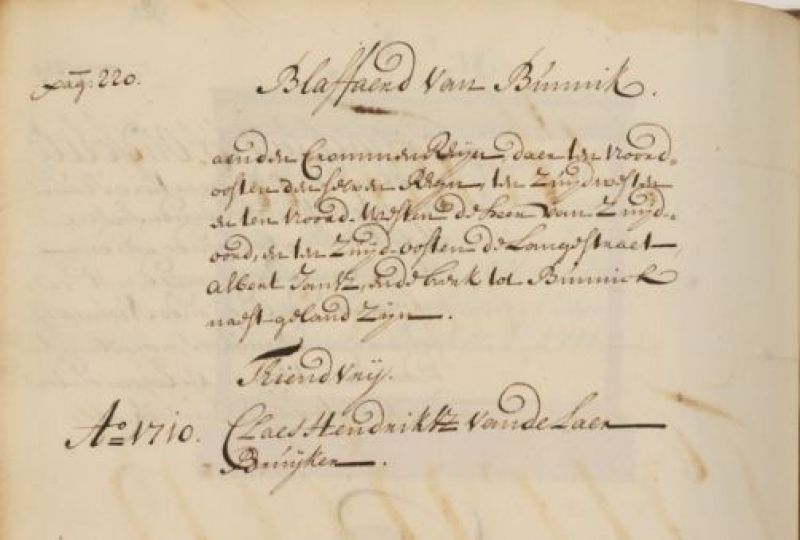 pag: 220.
Blaffaerd van Bunnik.
aenden Crommen Reijn, daer ten Noord-
oosten den selven Reijn, ten Zuijdwesten
en ten Noord-Westen de heer van Zuijd-
oord, en ten Zuijd-oosten de Langestraet,
Albert Jansz, ende kerk tot Bunnick
naest geland Zijn.
Thiend vrij.
Ao 1710. Claes Hendrikszz vande Laer
Bruijker.